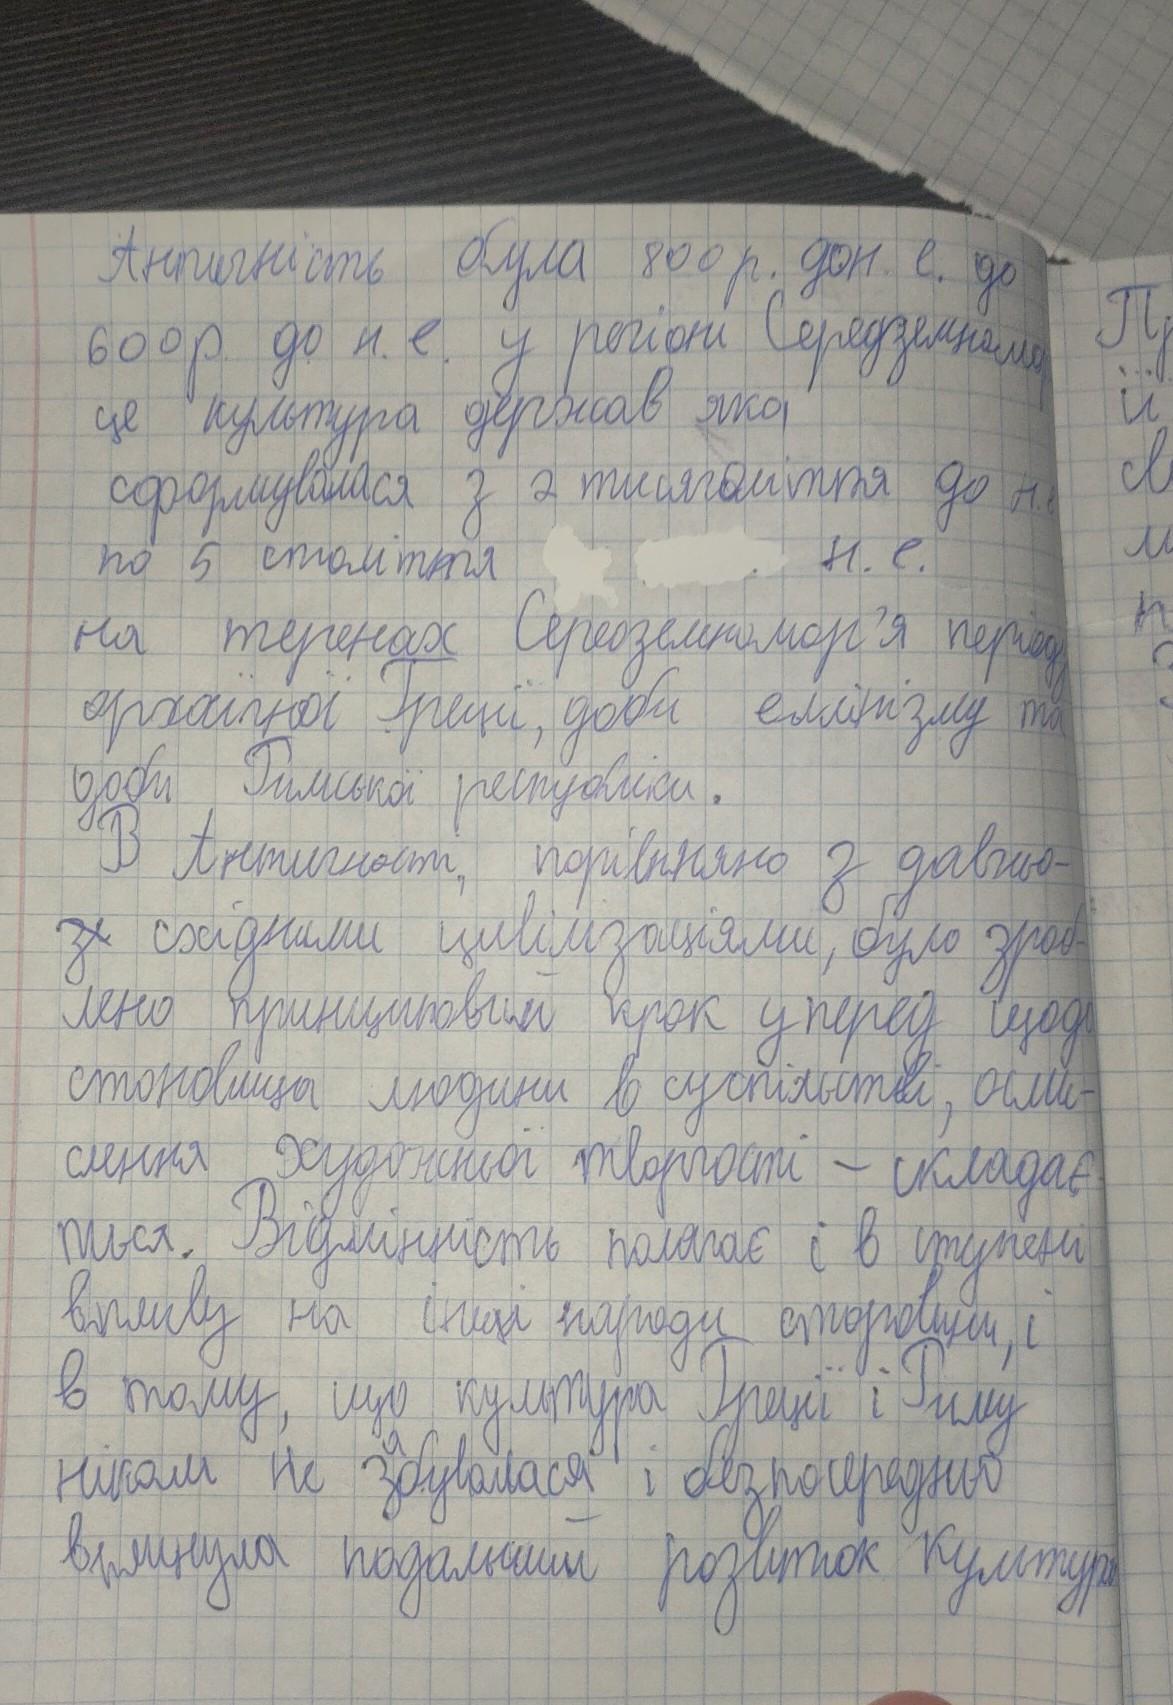 Античність була 800р. до н. е. до
600р. до н. е. у регіоні Середземномор
це культура держав яка
сформувалася з 2 тисячоліття до н.е
по 5 століття н. е.
на теренах Середземномор'я періоду
архаїчної Греції, доби еллінізму та
доби Римської республіки.
В Античності, порівняно з давньо-
східними цивілізаціями, було зроб-
лено принциповий крок уперед щодо
становища людини в суспільстві, осми-
слення художньої творчості – складає
ться. Відмінність полягає і в ступені
впливу на інші народи старовини, і
в тому, що культура Греції і Риму
ніколи не забувалася і безпосередньо
вплинула подальший розвиток культури
Пр
її